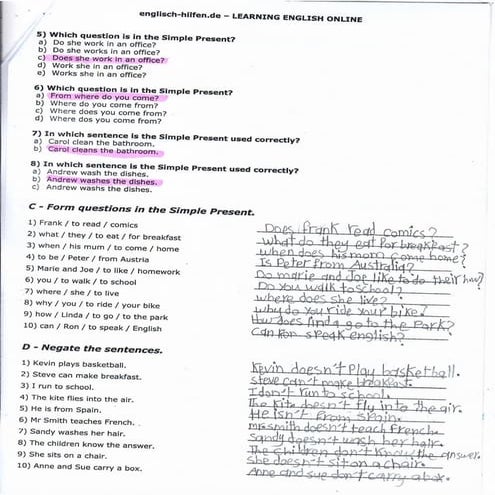 englisch-hilfen.de – LEARNING ENGLISH ONLINE
5) Which question is in the Simple Present?
a) Do she work in an office?
b) Do she works in an office?
c) Does she work in an office?
d) Work she in an office?
e) Works she in an office?
6) Which question is in the Simple Present?
a) From where do you come?
b) Where do you come from?
c) Where does you come from?
d) Where dos you come from?
7) In which sentence is the Simple Present used correctly?
a) Carol clean the bathroom.
b) Carol cleans the bathroom.
8) In which sentence is the Simple Present used correctly?
a) Andrew wash the dishes.
b) Andrew washes the dishes.
c) Andrew washs the dishes.
C - Form questions in the Simple Present.
1) Frank / to read / comics Does frank read comics?
2) what / they / to eat / for breakfast what do they eat for breakfast?
3) when / his mum / to come / home when does his mom come home?
4) to be / Peter / from Austria Is Peter from Australia?
5) Marie and Joe / to like / homework Do marie and Joe like to do their hw?
6) you / to walk / to school Do you walk to school?
7) where / she / to live where does she live?
8) why / you / to ride / your bike why do you ride your bike?
9) how / Linda / to go / to the park How does linda go to the Park?
10) can / Ron / to speak / English Can Ron speak english?
D - Negate the sentences.
1) Kevin plays basketball. Kevin doesn't Play basketball.
2) Steve can make breakfast. steve can't make breakfast.
3) I run to school. I don't run to school.
4) The kite flies into the air. The Kite doesn't fly into the air.
5) He is from Spain. He isn't from Spain.
6) Mr Smith teaches French. mr smith doesn't teach french.
7) Sandy washes her hair. Sandy doesn't wash her hair.
8) The children know the answer. The Children don't know the answer.
9) She sits on a chair. she doesn't sit on a chair.
10) Anne and Sue carry a box. Anne and sue don't carry a box.